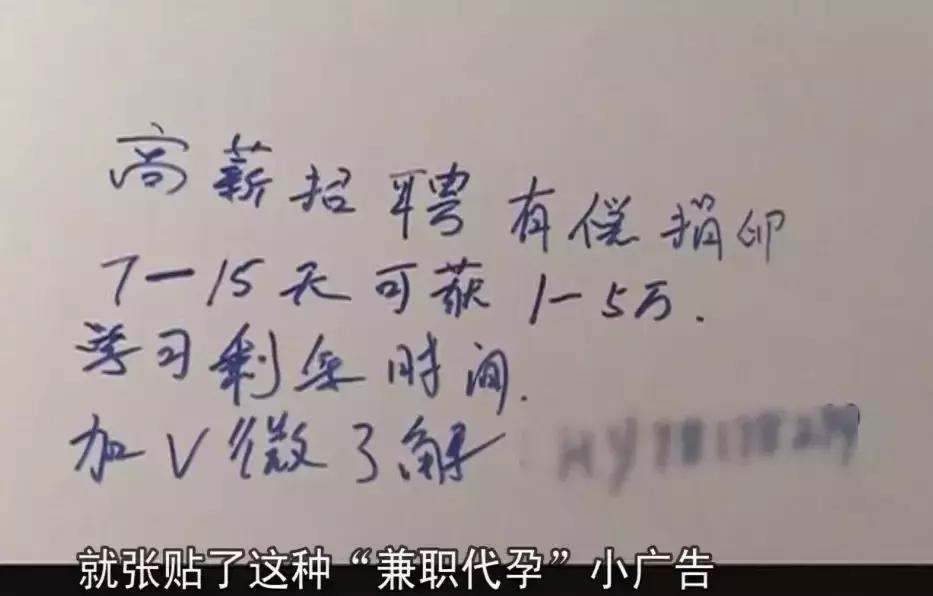 高薪招聘有偿捐卵
7一15天可获1一5万.
学习剩余时间.
加V微了解:
就张贴了这种“兼职代孕”小广告